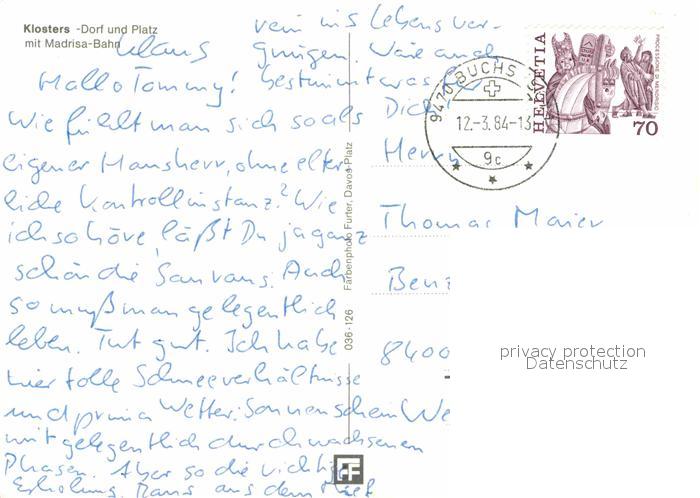 Klosters -Dorf und Platz
mit Madrisa-Bahn
Hallo Tommy!
Wie fühlt man sich so als
eigener Hausherr, ohne elter
liche Kontrollinstanz? Wie
ich so höre, läßt Du ja ganz
schön die Sau raus. Auch
so muß man gelegentlich
leben. Tut gut. Ich habe
hier tolle Schneeverhältnisse
und prima Wetter. Sonnenschein
mit gelegentlich durchwachsenen
Phasen. Aber so die richtige
Erholung. Raus aus dem
rein ins Lebensver-
gnügen. Wäre auch
bestimmt was
Dich
Klaus
036-126 Farbenphoto Furter, Davos-Platz
Herrn
Thomas Maier
8400
9470 BUCHS
12.-3.84-13
9c
HELVETIA
70
privacy protection
Datenschutz